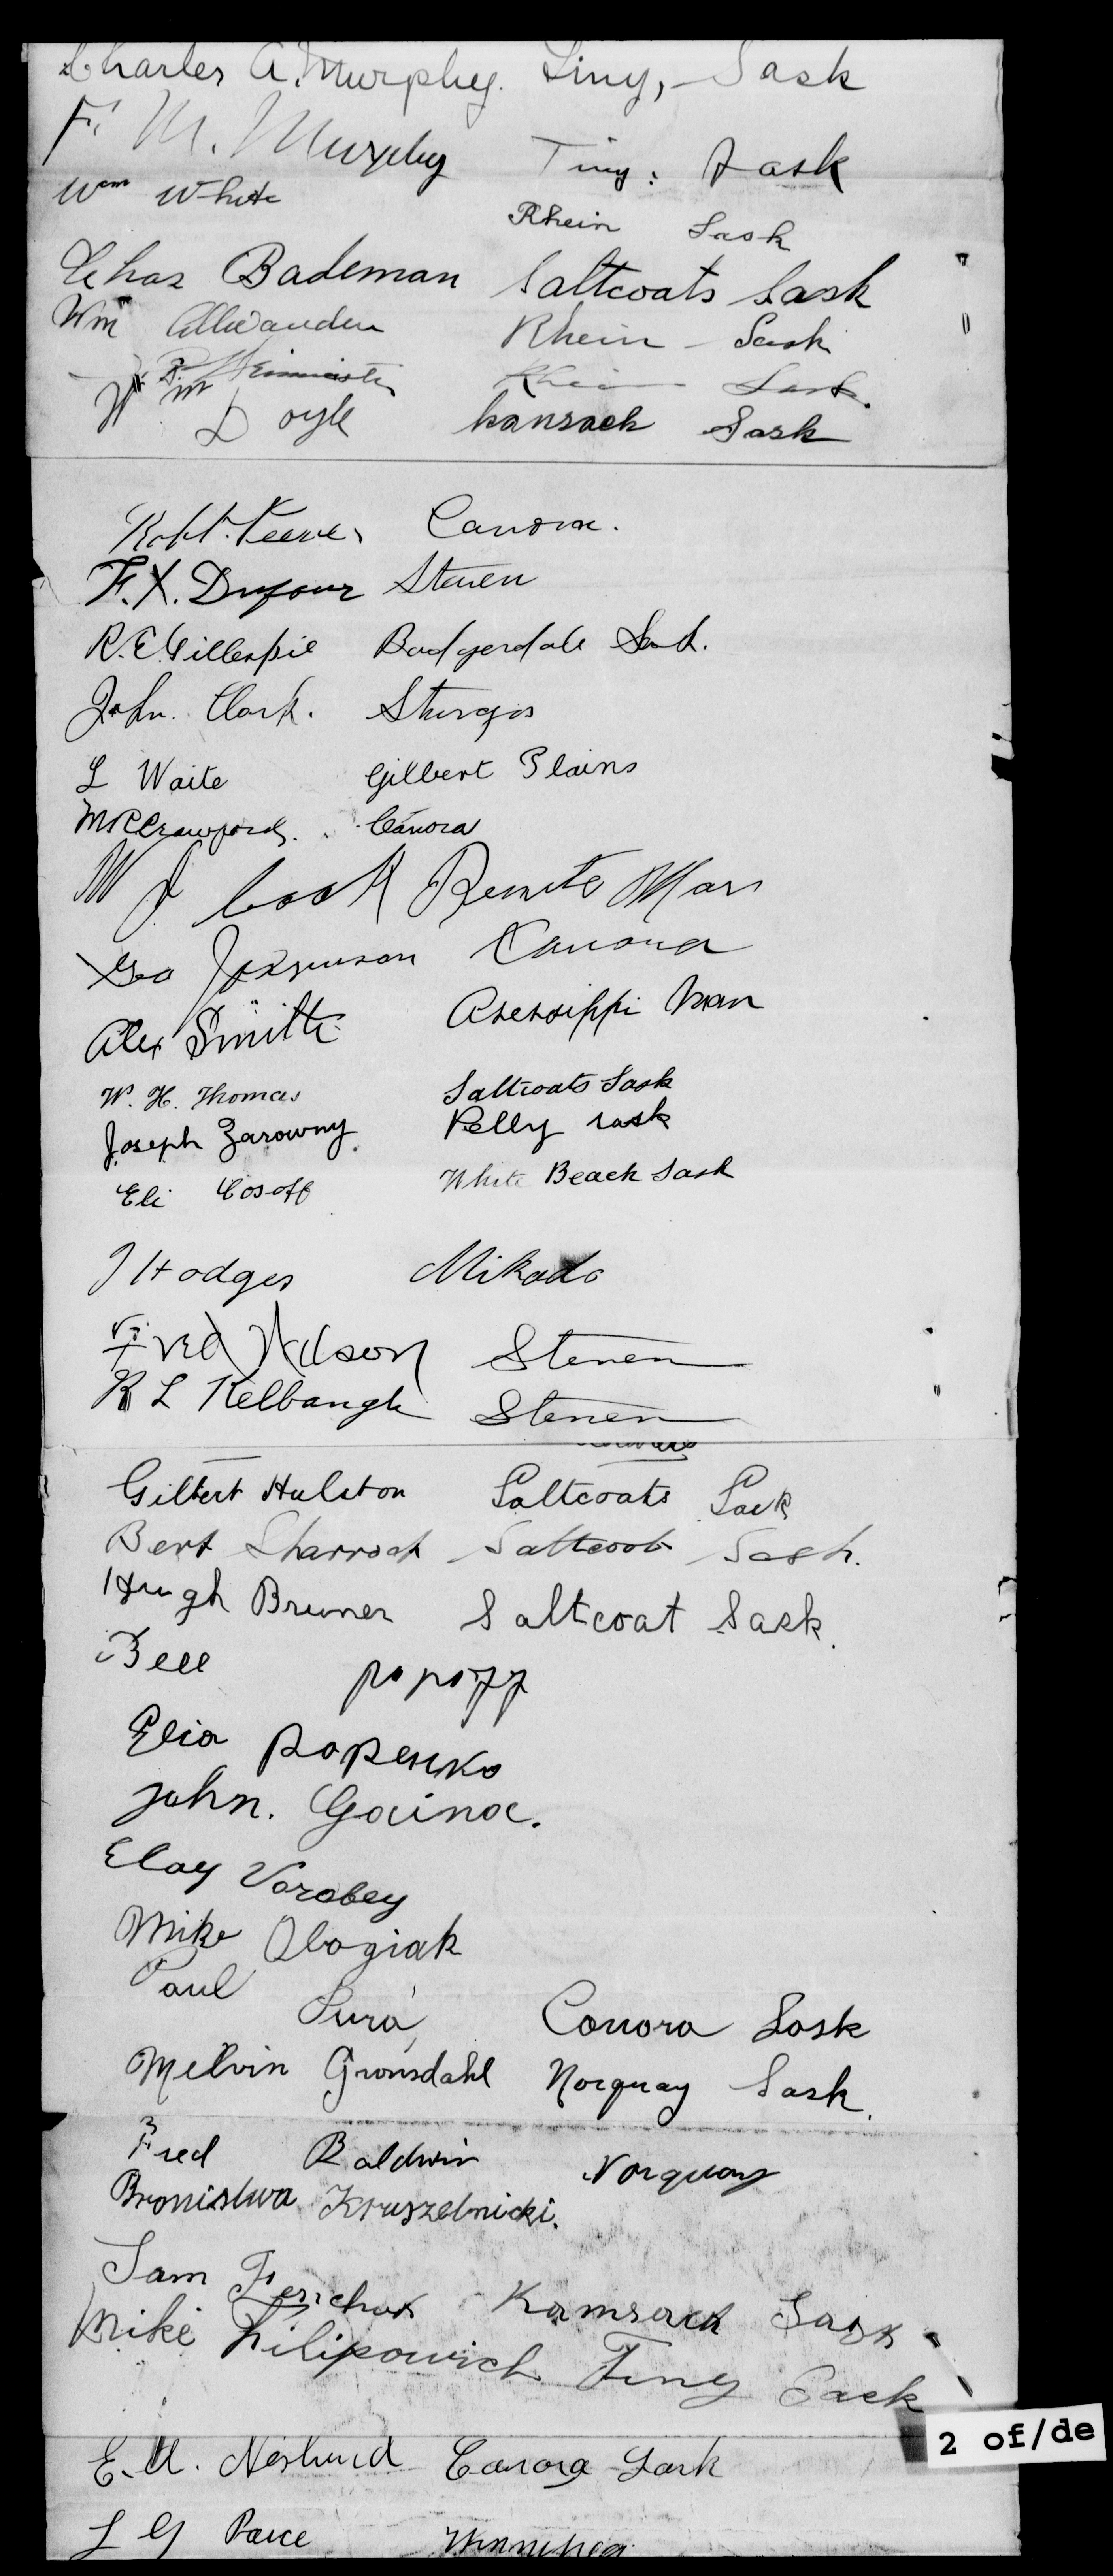 Charles A. Murphy. Tiny, Sask
F. M. Murphy Tiny: Sask
Wm White Rhein Sask
Chas Bademan Saltcoats Sask
Wm Rhein Sask
Rhein Sask.
Wm Doyle Kamsack Sask
Robt. Canora.
F. X. Dufour Stenen
R. E. Gillespie Badgerdale Sask.
John. Clark. Sturgis
L Waite Gilbert Plains
M R Crawford. Canora
W J Cook Benito Man
Geo Canora
Alex Smith Assessippi Man
W. H. Thomas Saltcoats Sask
Joseph Zarowny Pelly sask
Eli Cosoff White Beach Sask
J Hodges Mikado
Fred Wilson Stenen
R L Kelbaugh Stenen
Gilbert Hulston Saltcoats Sask
Bert Sharrock Saltcoats Sask.
Hugh Bruner Saltcoat Sask.
Bell popoff
Elia popenko
John. Gaina.
Elay Vorobey
Mike Oboziak
Paul Sura Canora Sask
Melvin Gronsdahl Norquay Sask.
Fred Baldwin Norquay
Bronislwa Kruszelnicki.
Sam Kamsack Sask
Mike Filipowich Tiny Sask
2 of/de
E. A. Neslund Canora Sask
L G Paice Winnipeg